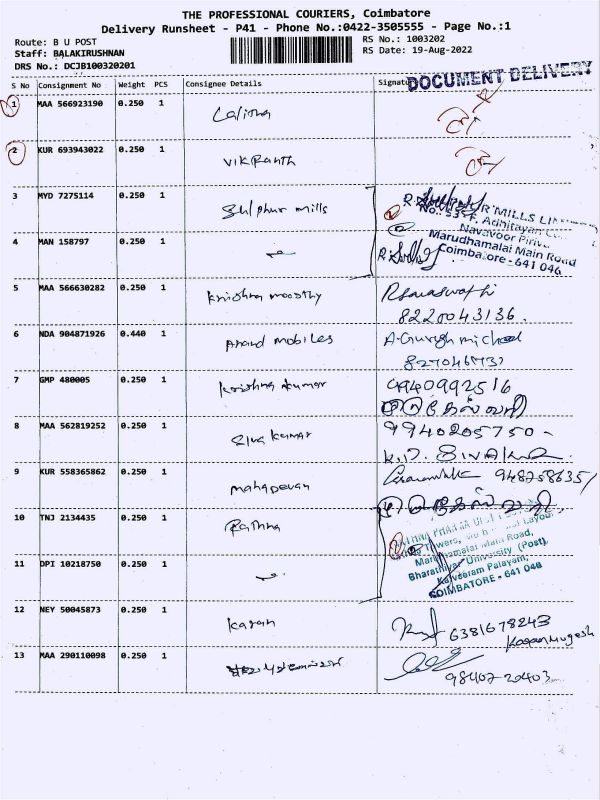 THE PROFESSIONAL COURIERS, Coimbatore
Delivery Runsheet - P41 - Phone No.:0422-3505555 - Page No.:1
Route: B U POST
Staff: BALAKIRUSHNAN
DRS No.: DCJB100320201
RS No.: 1003202
RS Date: 19-Aug-2022
DOCUMENT DELIVERY
S No Consignment No Weight PCS Consignee Details Signature
1 MAA 566923190 0.250 1
2 KUR 693943022 0.250 1 VIKRANTH
3 MYD 7275114 0.250 1 Sulphur mills
MILLS
Adhitayan
Navavoor Pirivu
Marudhamalai Main Road
Coimbatore - 641 046
4 MAN 158797 0.250 1
5 MAA 566630282 0.250 1 Krishna moorthy R Saraswathi
8220043136.
6 NDA 904871926 0.440 1 Anand mobiles
7 GMP 480005 0.250 1 Krishna kumar 9940992516
8 MAA 562819252 0.250 1 Siva kumar 9940205750
9 KUR 558365862 0.250 1 mahadevan
10 TNJ 2134435 0.250 1 Rathna
Towers,
Main Road,
Bharathiyar University (Post),
Kalveeram Palayam,
COIMBATORE - 641 046
11 DPI 10218750 0.250 1
12 NEY 50045873 0.250 1 Karan 6381678243
13 MAA 290110098 0.250 1 98407-20403